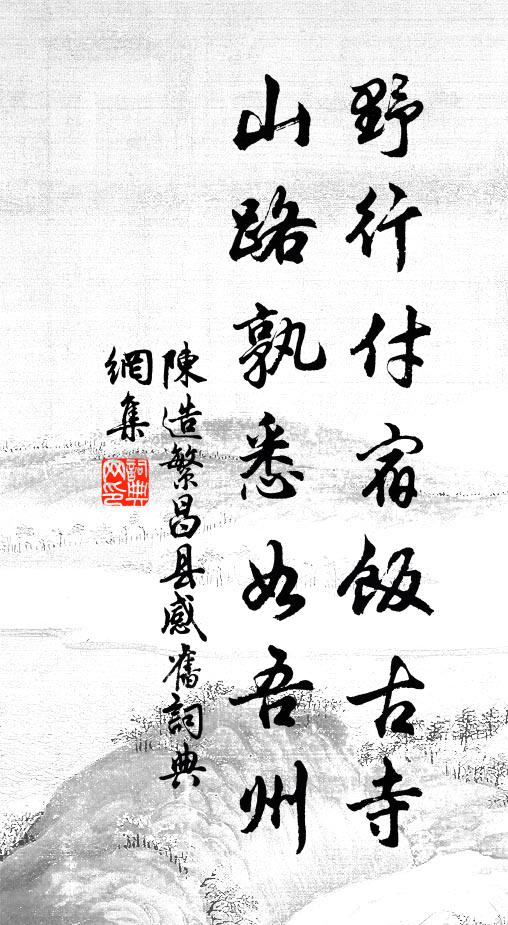 野行付宿飯古寺
山路孰悉如吾州
陳造繁昌县感舊詞典
網集
詞典
网印